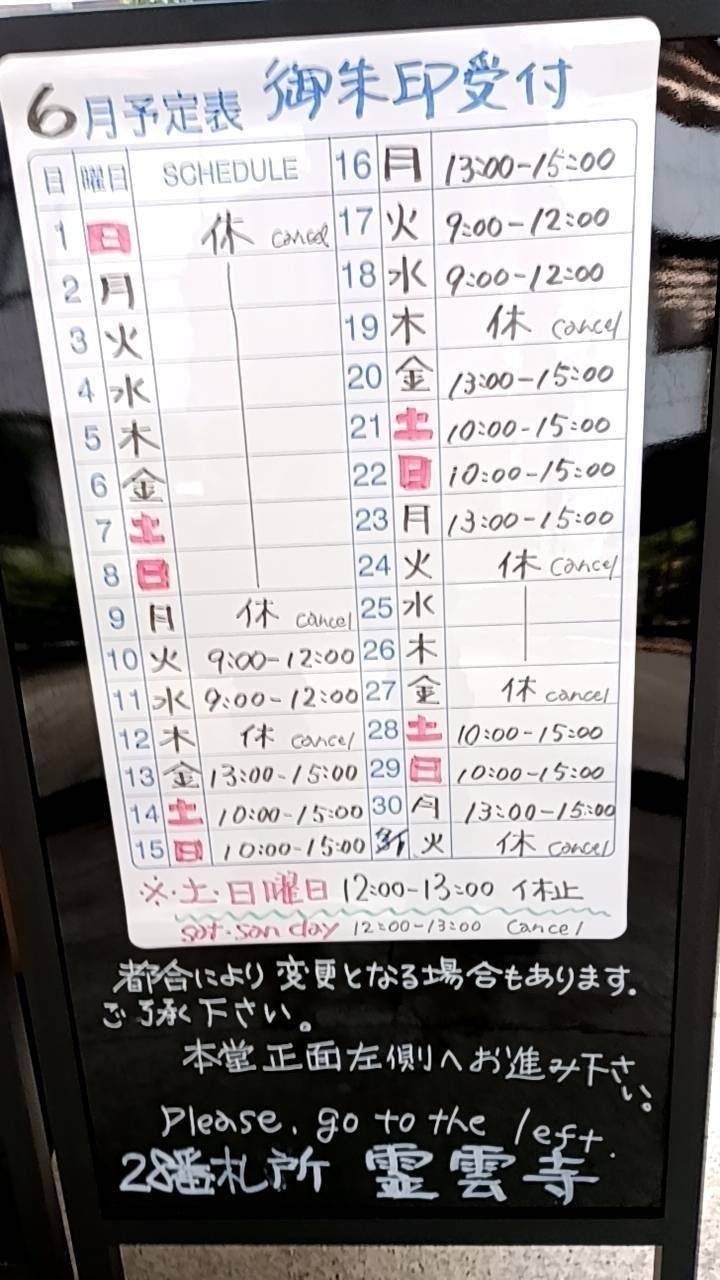 6月予定表 御朱印受付
日 曜日 SCHEDULE
1 日 休 cancel
2 月
3 火
4 水
5 木
6 金
7 土
8 日
9 月 休 cancel
10 火 9:00-12:00
11 水 9:00-12:00
12 木 休 cancel
13 金 13:00-15:00
14 土 10:00-15:00
15 日 10:00-15:00
16 月 13:00-15:00
17 火 9:00-12:00
18 水 9:00-12:00
19 木 休 cancel
20 金 13:00-15:00
21 土 10:00-15:00
22 日 10:00-15:00
23 月 13:00-15:00
24 火 休 cancel
25 水
26 木
27 金 休 cancel
28 土 10:00-15:00
29 日 10:00-15:00
30 月 13:00-15:00
火 休 cancel
※・土・日曜日 12:00-13:00 休止
sat・san day 12:00-13:00 Cancel
都合により変更となる場合もあります.
ご了承下さい。
本堂正面左側へお進み下さい。
Please. go to the left.
28番札所 霊雲寺